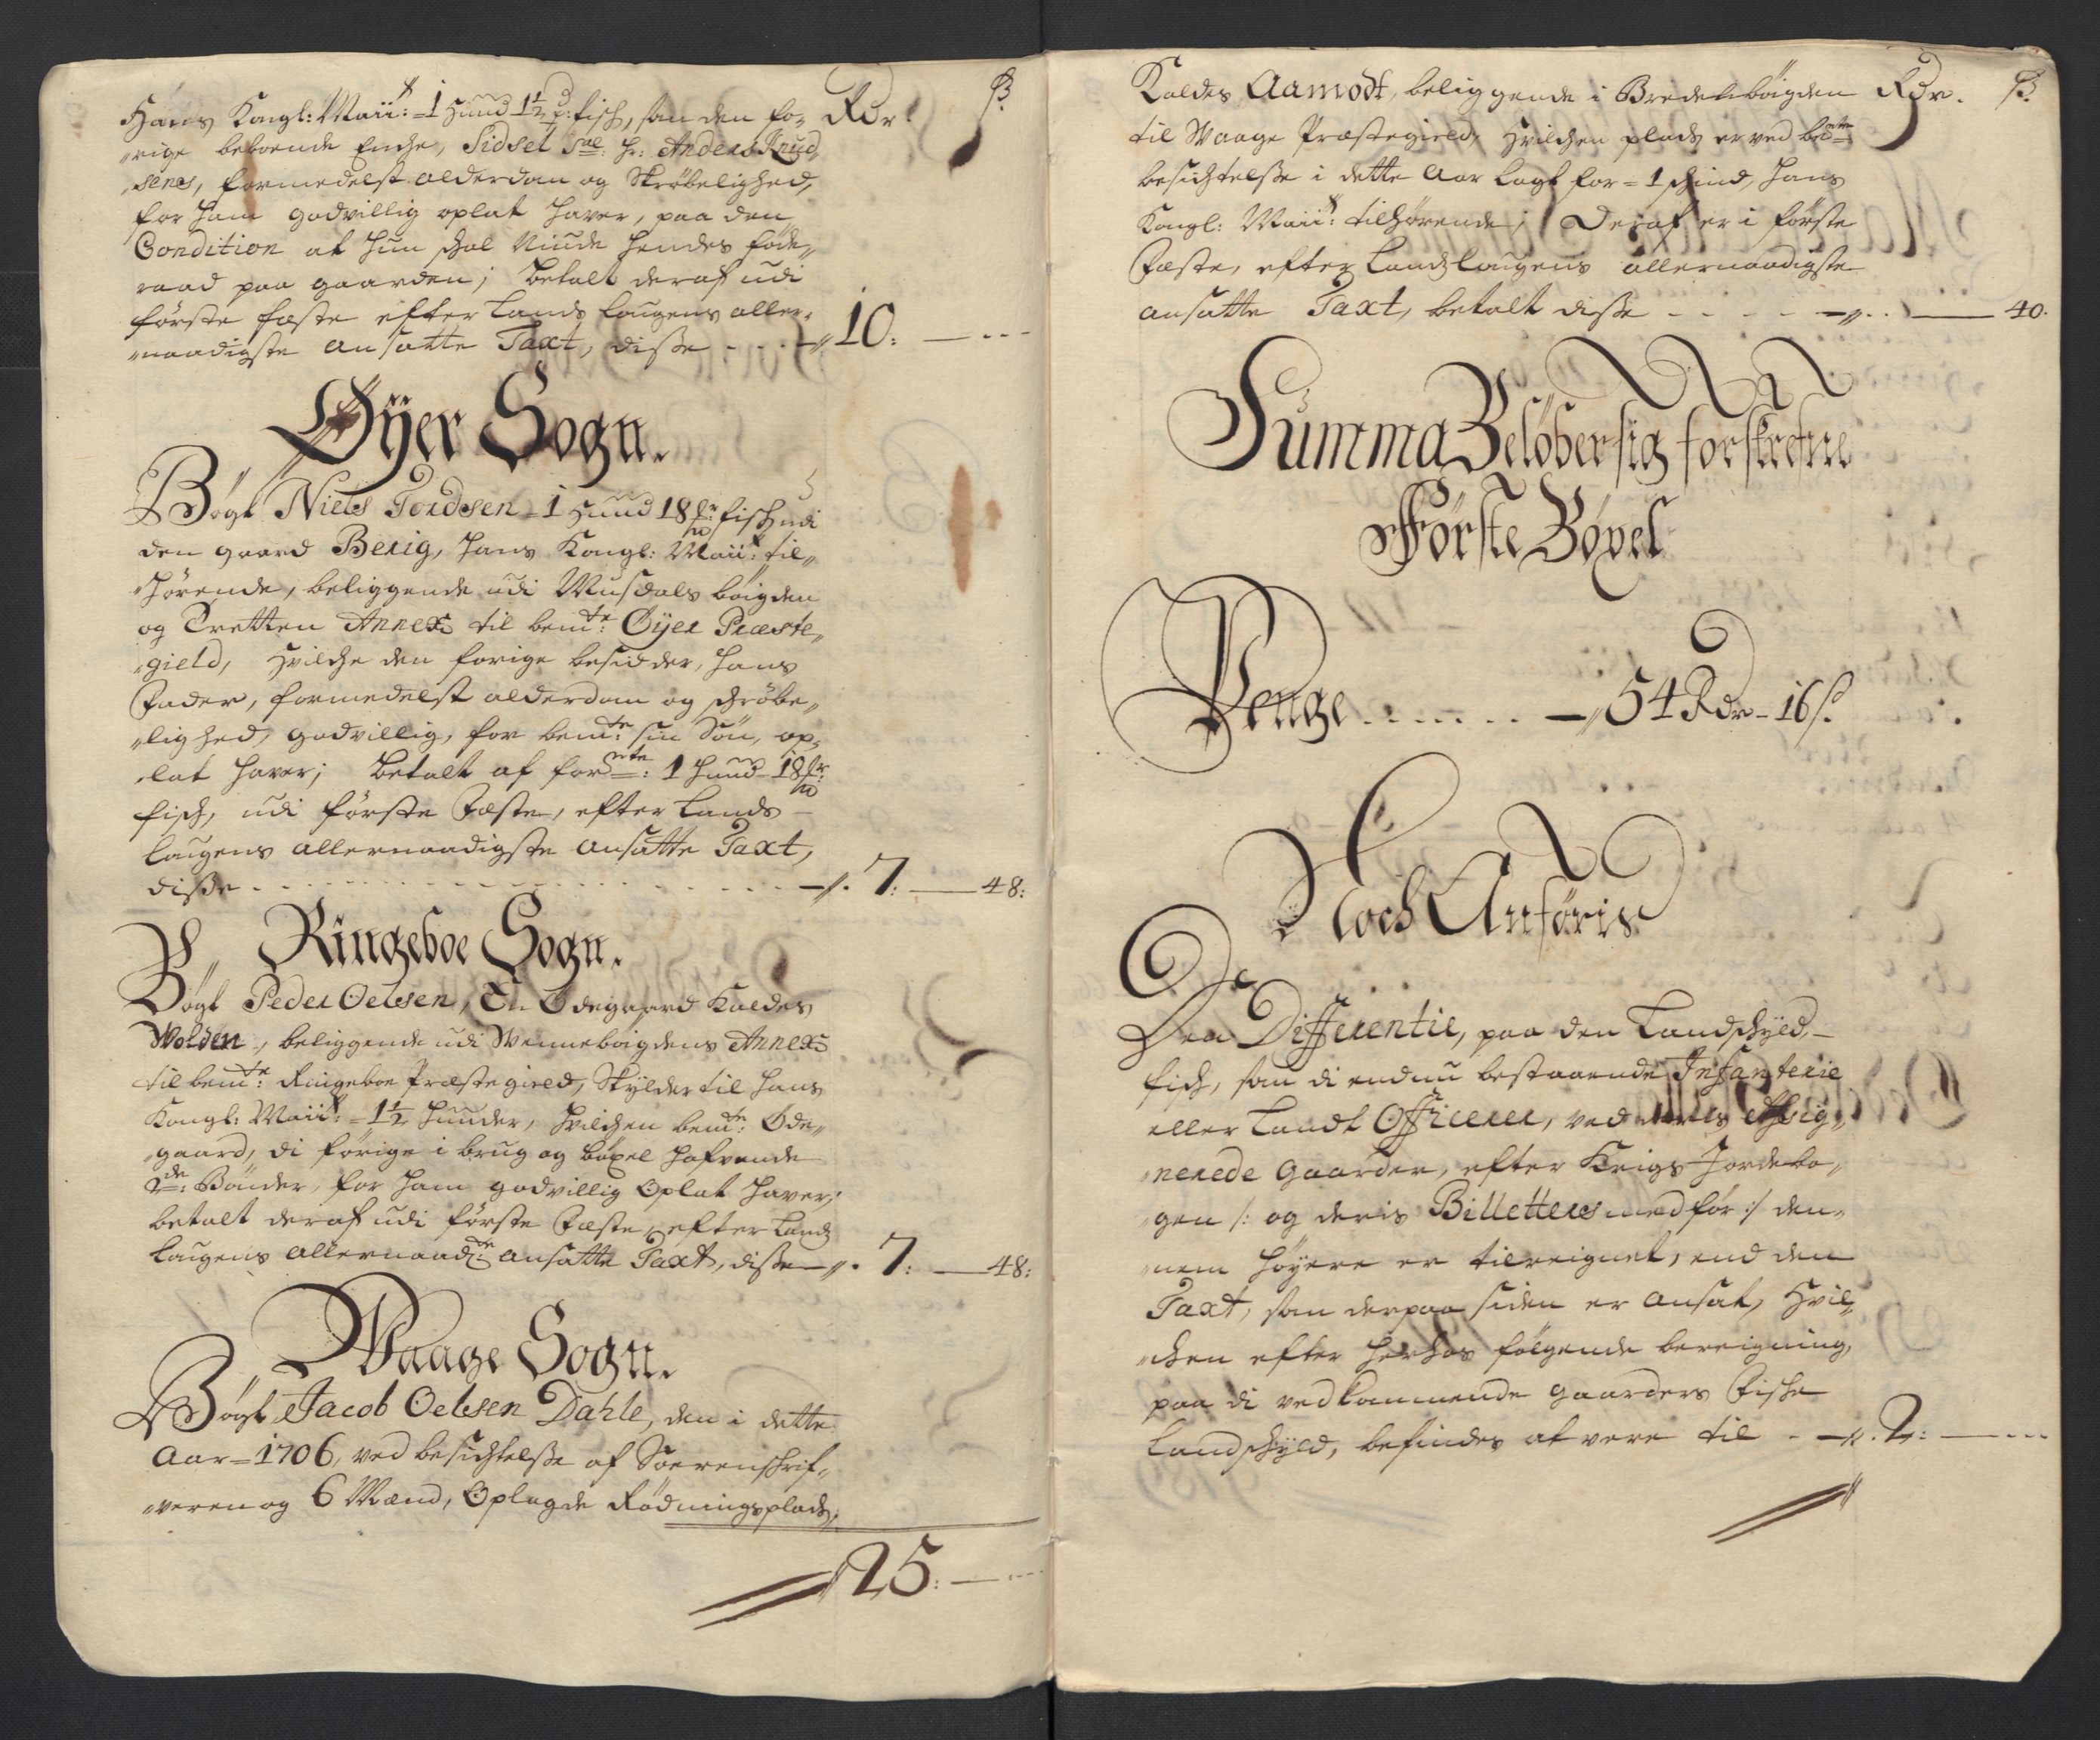 Hans Kongl: Maii: = 1 Hund 1½ fisch, som den fo- Rdr ß.
rige beboende Enche, Sidsel Sal: Hr: Anders Knud
sens, formedelst alderdom og Skröbelighed,
for ham godvillig oplat haver, paa den
Condition at hun schal Niude hendes föde„
raad paa gaarden; betalt deraf udi
förste fæste efter Lands Laugens aller„
„naadigste ansatte Taxt, disse - - - 10: — - - -
Øÿer Sogn.
Bögt Niels Tordsen = 1 Hund 18 fisch udi
den gaard Berig, Hans Kongl: Maii: til„
„hörende, beliggende udi Musdals böigden
og Tretten Annex til bemte: Öÿer Præste„
„gield, hvilche den forige besidder, hans
Fader, formedelst alderdom og schröbe„
„lighed, godvillig, for bemte: sin Sön, op„
„lat haver; betalt af for: 1 hund 18
fisch, udi förste Fæste, efter Lands
Laugens allernaadigste ansatte Taxt,
disse - - - 7: — 48:
Ringeboe Sogn.
Bögt Peder Oelsen, En Ödegaard Kaldes
Wolden, beliggende udi Wenneböigdens Annex
til bemte: Ringeboe Præstegield, Skylder til Hans
Kongl: Maii: = 1½ hunder, hvilchen bemte: Öde„
„gaard, di forige i brug og böxel hafvende
2de: Bönder, for ham godvillig Oplat haver;
betalt deraf udi förste Fæste, efter Landz
Laugens Allernaadste ansatte Taxt, disse - 7: — 48:
Waage Sogn.
Bögt Jacob Oelsen Dahle, den i dette
Aar = 1706, ved besichtelsse af Soerenschrif„
„veren og 6 Mænd, Oplagde Rödningsplads,
25: — - - -
Kaldes Aamodt, beliggende i Bredeböigden Rdr. ß.
til Waage Præstegield, hvilchen plads er ved bemte
besichtelsse i dette Aar lagt for = 1 schind, Hans
Kongl: Maii: tilhörende; Deraf er i förste
Fæste, efter Landzlaugens allernaadigste
ansatte Taxt, betalt disse - - - — 40.
Summa Belöber sig forskrefne
Förste Böxel
Penge - - - 54 Rdr - 16 ß.
Noch Anföris
Dea Differentie, paa den Landschÿld,
fisch, som di endnu bestaaende Infanterie
eller Landt Officerer, ved deris Assig„
„nerede gaarder, efter Krigs Jordebo„
„gen /: og deris Billetters medför :/ den„
„nem höÿere er tilreignet, end den
Taxt, som derpaa siden er ansat, hvil„
„chen efter herhos fölgende bereigning,
paa di vedkommende gaarders Fische
Landschÿld, befindes at være til - - 2: — - - -